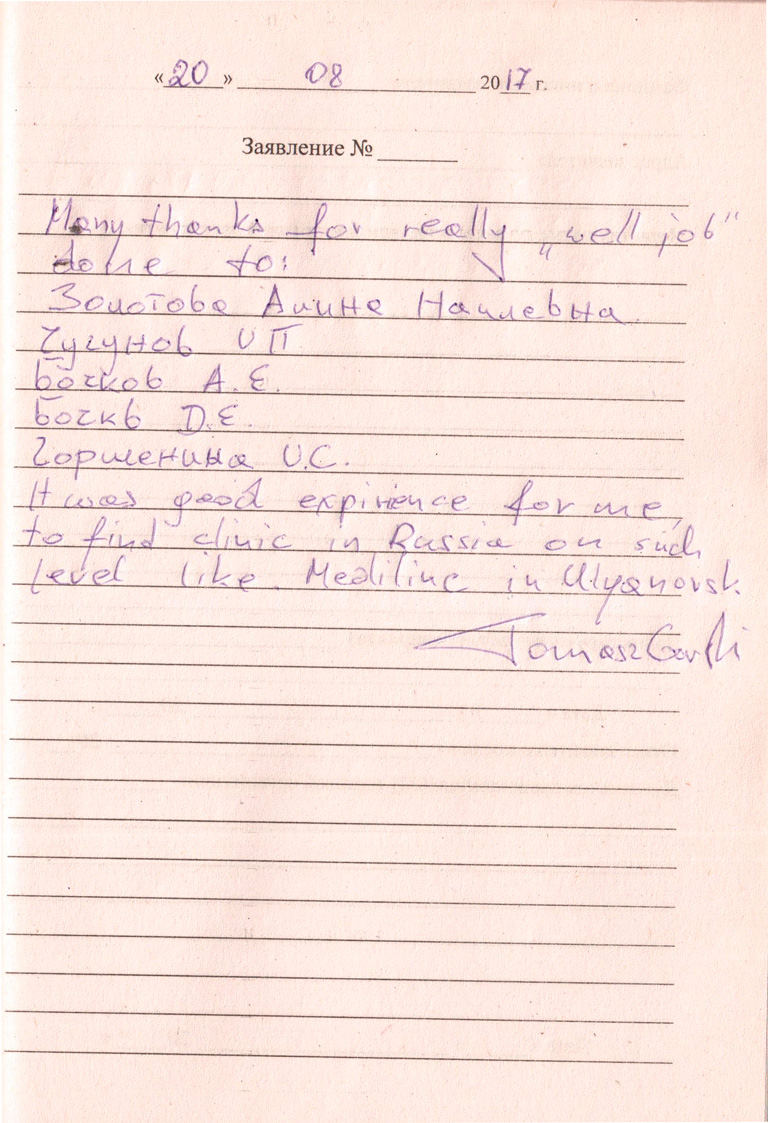 «20» 08 2017 г.
Заявление № ______
Many thanks for really „well job"
done to:
Золотова Алина Наилевна
Чугунов И П
Бочков А. Е.
Бочкв D.E.
Горшенина И.С.
It was good expirience for me,
to find clinic in Russia on such
level like Medilinc in Ulyanovsk
Tomasz